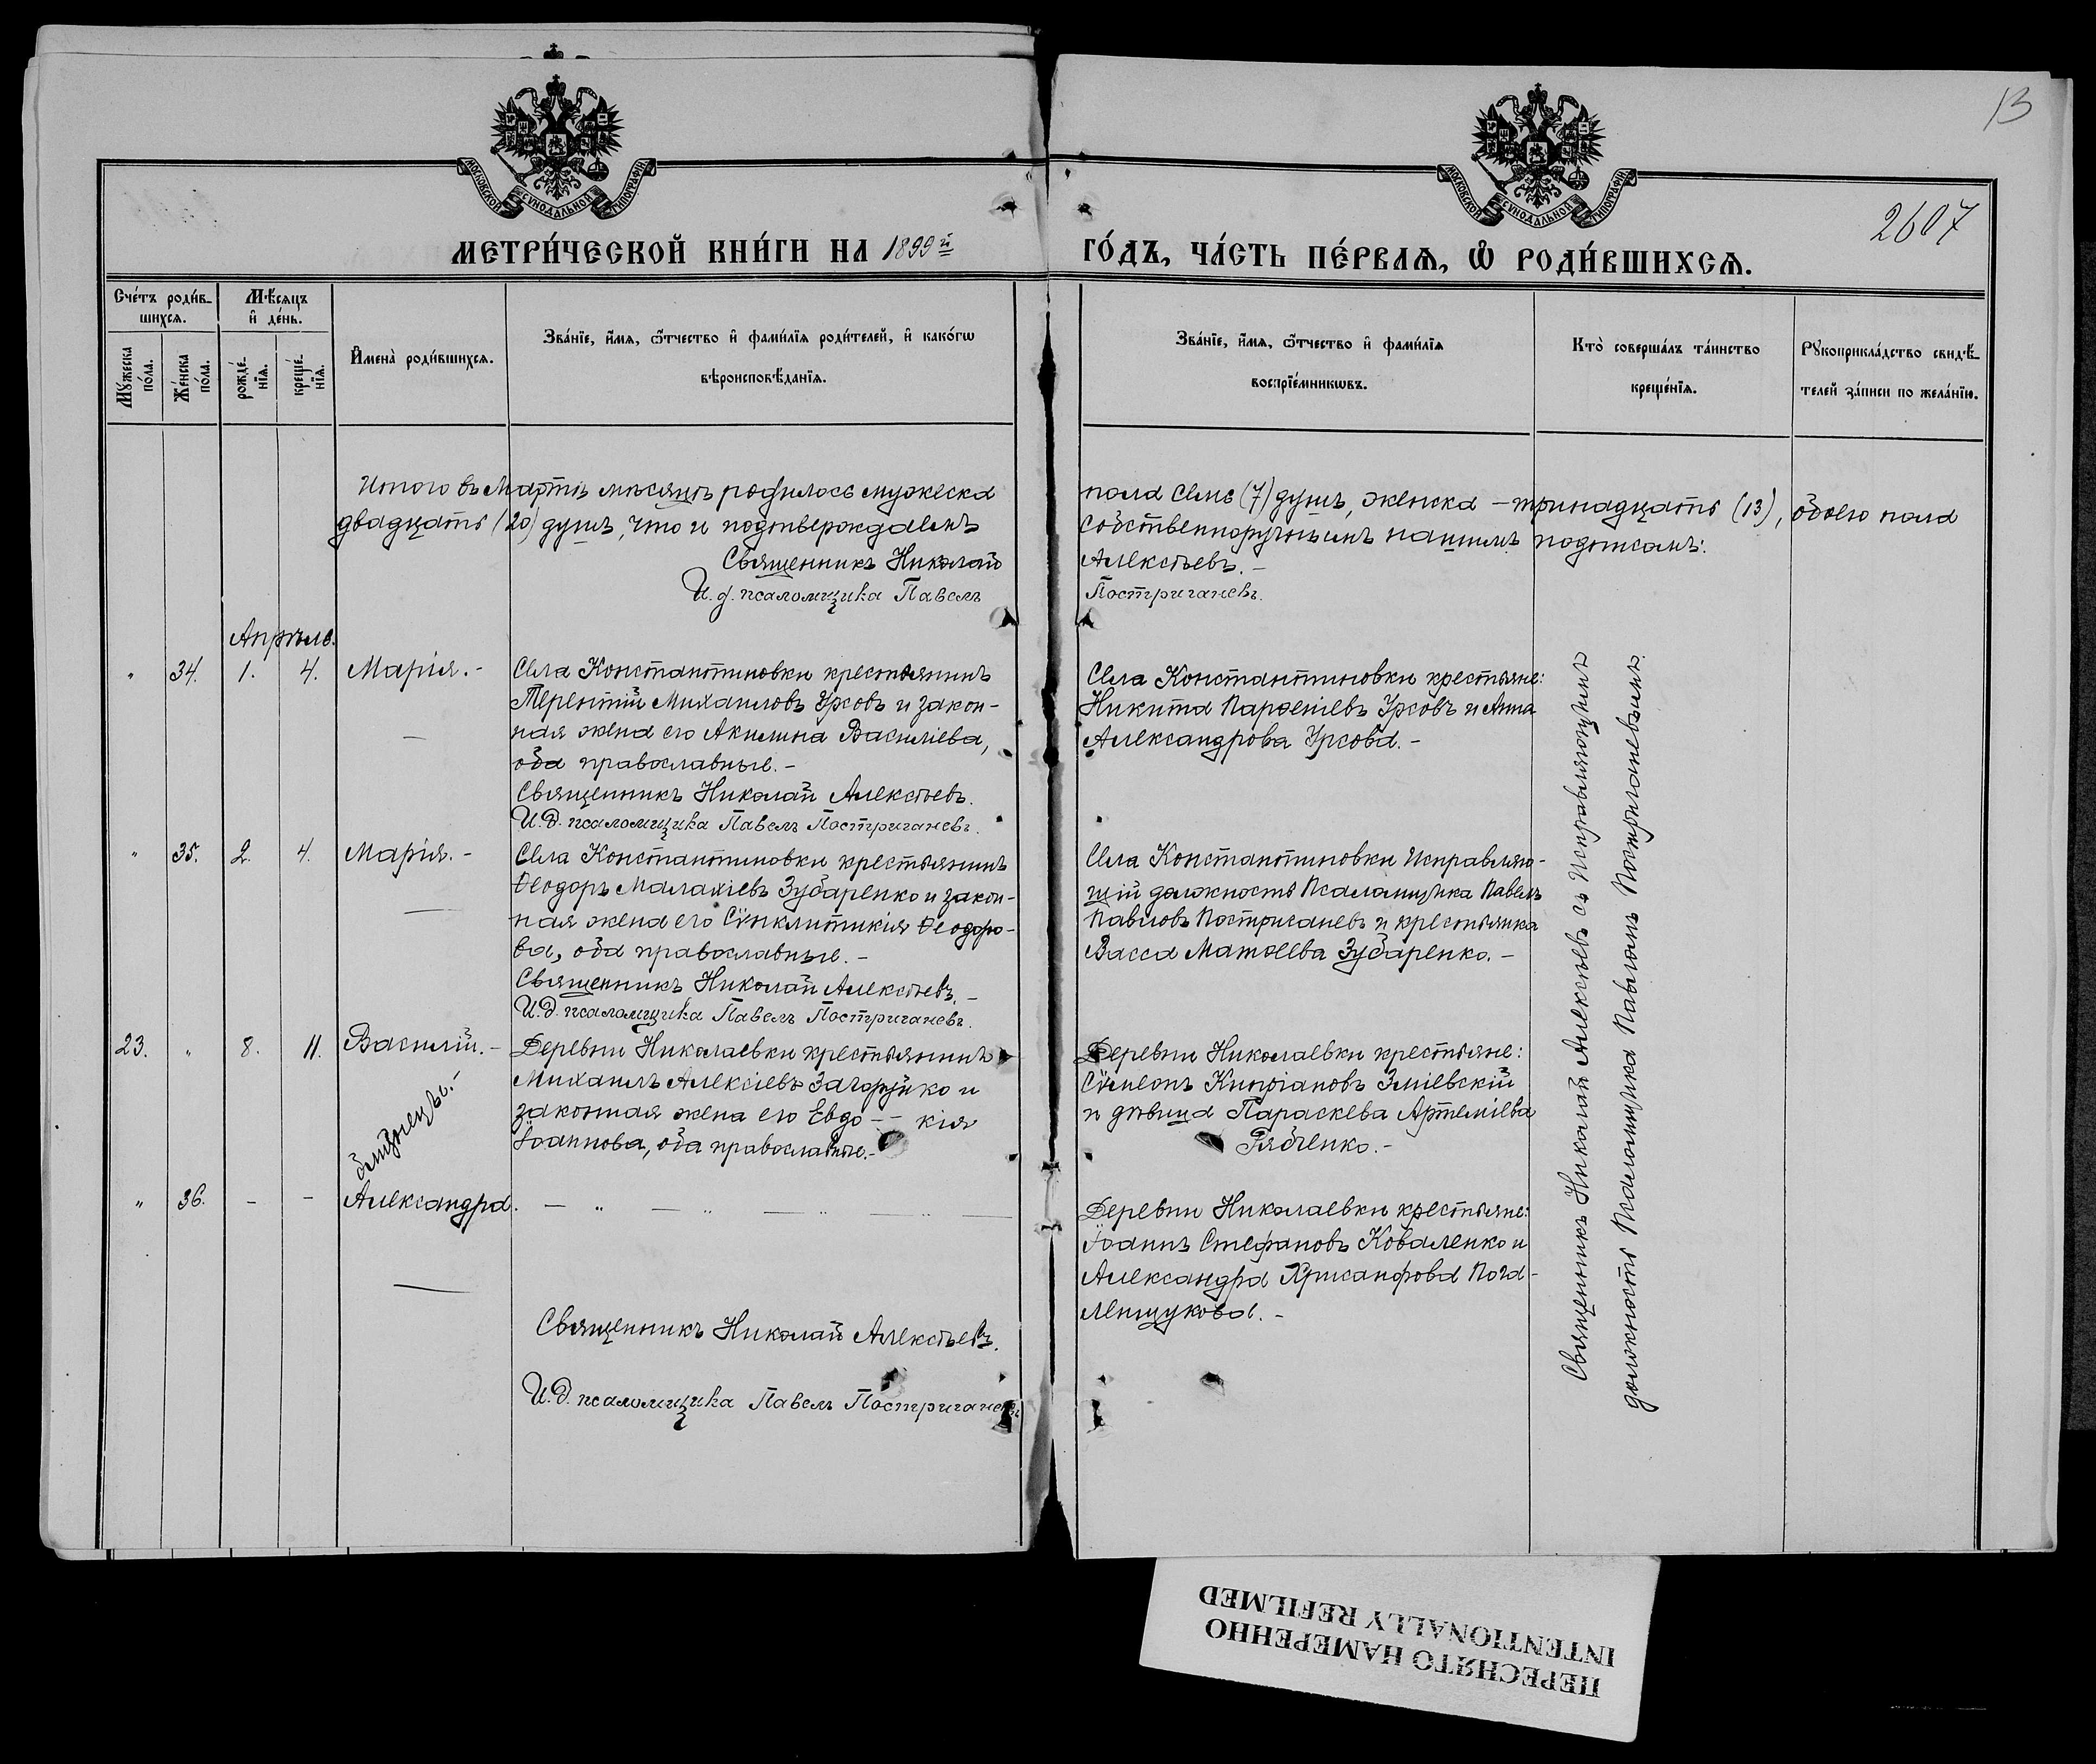 13
МОСКОВСКОЙ СѴНОДАЛЬНОЙ ТИПОГРАФІИ
МОСКОВСКОЙ СѴНОДАЛЬНОЙ ТИПОГРАФІИ
2607
МЕТРИ́ЧЕСКОЙ КНИ́ГИ НА 1899й ГО́ДЪ, ЧА́СТЬ ПЕ́РВАѦ, Ѡ҆ РОДИ́ВШИХСѦ.
Сче́тъ роди́в-
шихсѧ.
Мѣ́сѧцъ
и҆ де́нь.
Мꙋ́жеска
по́ла.
Же́нска
по́ла.
рожде́-
нїѧ.
креще́-
нїѧ.
И҆мена̀ роди́вшихсѧ.
Зва́нїе, и҆́мѧ, ѻ҆́тчество и҆ фами́лїѧ роди́телей, и҆ како́гѡ
вѣроисповѣ́данїѧ.
Зва́нїе, и҆́мѧ, ѻ҆́тчество и҆ фами́лїѧ
воспрїе́мникѡвъ.
Кто̀ соверша́лъ та́инство
креще́нїѧ.
Рꙋкоприкла́дство свидѣ́-
телей за́писи по жела́нїю.
Итого въ Мартѣ мѣсяцѣ родилось мужеска пола семь (7) душъ, женска – тринадцать (13), обоего пола
двадцать (20) душъ, что и подтверждаемъ собственноручнымъ нашимъ подписомъ:
Священникъ Николай Алексѣевъ.–
И. д. псаломщика Павелъ Постригачевъ.
Апрѣль.
„ 34. 1. 4. Марія.–
Села Константиновки крестьянинъ
Терентій Михаиловъ Урсовъ и закон-
ная жена его Акилина Василіева,
оба православные.–
Священникъ Николай Алексѣевъ.
И.д. псаломщика Павелъ Постригачевъ.
Села Константиновки крестьяне:
Никита Парѳеніевъ Урсовъ и Анна
Александрова Урсова.–
„ 35. 2. 4. Марія.–
Села Константиновки крестьянинъ
Ѳеодоръ Малахіевъ Зубаренко и закон-
ная жена его Сѵнклитикія Ѳеодоро-
ва, оба православные.–
Священникъ Николай Алексѣевъ.–
И.д. псаломщика Павелъ Постригачевъ.
Села Константиновки Исправляю-
щій должность Псаломщика Павелъ
Павловъ Постригачевъ и крестьянка
Васса Матѳеева Зубаренко.–
23. „ 8. 11. Василій.–
близнецы!
Деревни Николаевки крестьянинъ
Михаилъ Алексіевъ Загоруйко и
законная жена его Евдо– кія
Іоаннова, оба православные.–
Деревни Николаевки крестьяне:
Сѵмеонъ Кипріановъ Зміевскій
и дѣвица Параскева Артеміева
Рябченко.–
„ 36. – – Александра. – „ – „ – „ – „ –
Деревни Николаевки крестьяне:
Іоаннъ Стефановъ Коваленко и
Александра Хрисанфова Пога-
ленщукова.–
Священникъ Николай Алексѣевъ.
И.д. псаломщика Павелъ Постригачевъ
Священникъ Николай Алексѣевъ съ Исправляющимъ
должность Псаломщика Павломъ Постригачевымъ.
ПЕРЕСНЯТО НАМЕРЕННО
INTENTIONALLY REFILMED